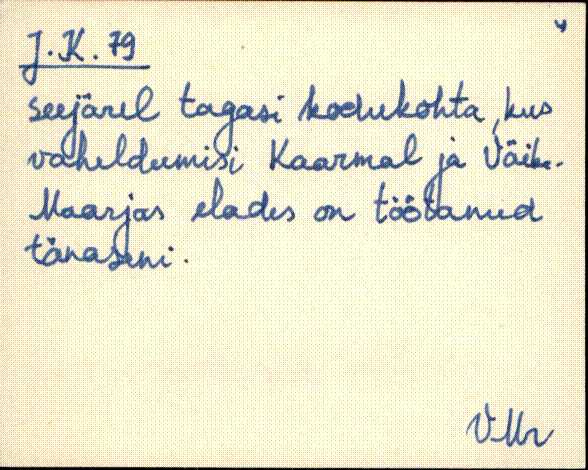 4
J. K. 79
seejärel tagasi kodukohta, kus
vaheldumisi Kaarmal ja Väike-
Maarjas elades on töötanud
tänaseni.